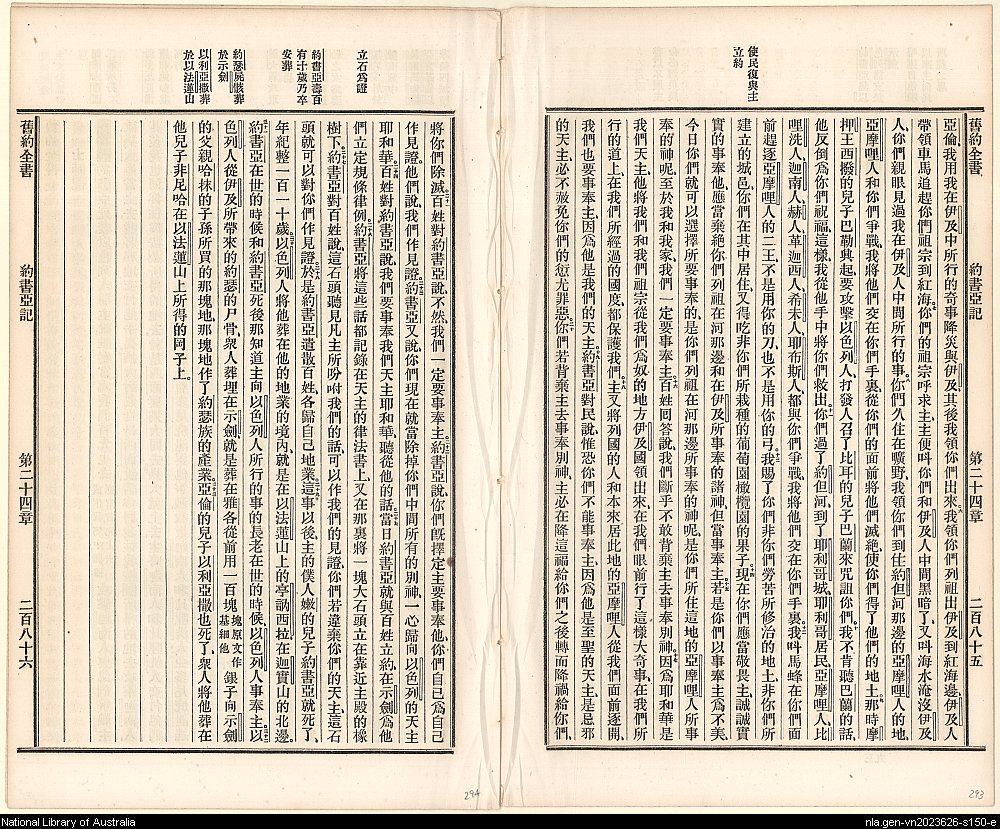 使民復與主
立約
舊約全書 約書亞記 第二十四章 二百八十五
亞倫、我用我在伊及中所行的奇事降災與伊及其後我領你們出來。我領你們列祖出伊及到紅海邊、伊及人
帶領車馬追趕你們祖宗到紅海。你們的祖宗呼求主、主便呌你們和伊及人中間黑暗了、又呌海水淹沒伊及
人、你們親眼見過我在伊及人中間所行的事、你們久住在曠野。我領你們到住約但河那邊的亞摩哩人的地、
亞摩哩人和你們爭戰、我將他們交在你們手裏、從你們的面前將他們滅絕、使你們得了他們的地土。那時摩
押王西撥的兒子巴勒興起要攻擊以色列人、打發人召了比耳的兒子巴蘭來咒詛你們。我不肯聽巴蘭的話、
他反倒爲你們祝福、這樣我從他手中將你們救出。你們過了約但河、到了耶利哥城、耶利哥居民、亞摩哩人、比
哩洗人、迦南人、赫人、革迦西人、希未人、耶布斯人、都與你們爭戰、我將他們交在你們手裏。我呌馬蜂在你們面
前趕逐亞摩哩人的二王、不是用你的刀、也不是用你的弓。我賜了你們非你們勞苦所修治的地土、非你們所
建立的城邑、你們在其中居住、又得吃非你們所栽種的葡萄園橄欖園的果子。現在你們應當敬畏主、誠誠實
實的事奉他、應當棄絶你們列祖在河那邊和在伊及所事奉的諸神、但當事奉主。若是你們以事奉主爲不美、
今日你們就可以選擇所要事奉的、是你們列祖在河那邊所事奉的神呢、是你們所住這地的亞摩哩人所事
奉的神呢、至於我和我家、我們一定要事奉主。百姓囘答說、我們斷乎不敢背棄主去事奉別神。因爲耶和華
我們天主、他將我們和我們祖宗從我們爲奴的地方伊及國領出來、在我們眼前行了這樣大奇事、在我們所
行的道上、在我們所經過的國度、都保護我們。主又將列國的人和本來居此地的亞摩哩人、從我們面前逐開、
我們也要事奉主、因爲他是我們的天主。約書亞對民說、惟恐你們不能事奉主、因爲他是至聖的天主、是忌邪
的天主、必不赦免你們的愆尤罪惡。你們若背棄主去事奉別神、主必在降這福給你們之後、轉而降禍給你們、
立石爲證
約書亞壽百
有十歲乃卒
安葬
約瑟屍骸葬
於示劍
以利亞撒葬
於以法蓮山
將你們除滅。百姓對約書亞說、不然、我們一定要事奉主。約書亞說、你們旣擇定主要事奉他、你們自己爲自己
作見證。他們說、我們作見證。約書亞又說、你們現在就當除掉你們中間所有的別神、一心歸向以色列的天主
耶和華。百姓對約書亞說、我們要事奉我們天主耶和華、聽從他的話。當日約書亞就與百姓立約、在示劍爲他
們立定規條律例。約書亞將這些話都記錄在天主的律法書上、又在那裏將一塊大石頭立在靠近主殿的橡
樹下。約書亞對百姓說、這石頭聽見凡主所吩咐我們的話、可以作我們的見證、你們若違棄你們的天主、這石
頭就可以對你們作見證。於是約書亞遣散百姓、各歸自己地業。這事以後、主的僕人嫩的兒子約書亞就死了、
年紀整一百一十歲。以色列人將他葬在他的地業的境內、就是在以法蓮山上的亭訥西拉、在迦實山的北邊。
約書亞在世的時候、和約書亞死後那知道主向以色列人所行的事的長老在世的時候、以色列人事奉主。以
色列人從伊及所帶來的約瑟的尸骨、衆人葬埋在示劍、就是葬在雅各從前用一百塊塊原文作基細他銀子向示劍
的父親哈抹的子孫所買的那塊地、那塊地作了約瑟族的產業。亞倫的兒子以利亞撒也死了、衆人將他葬在
他兒子非尼哈在以法蓮山上所得的岡子上。
舊約全書 約書亞記 第二十四章 二百八十六
294
293
National Library of Australia
nla.gen-vn2023626-s150-e